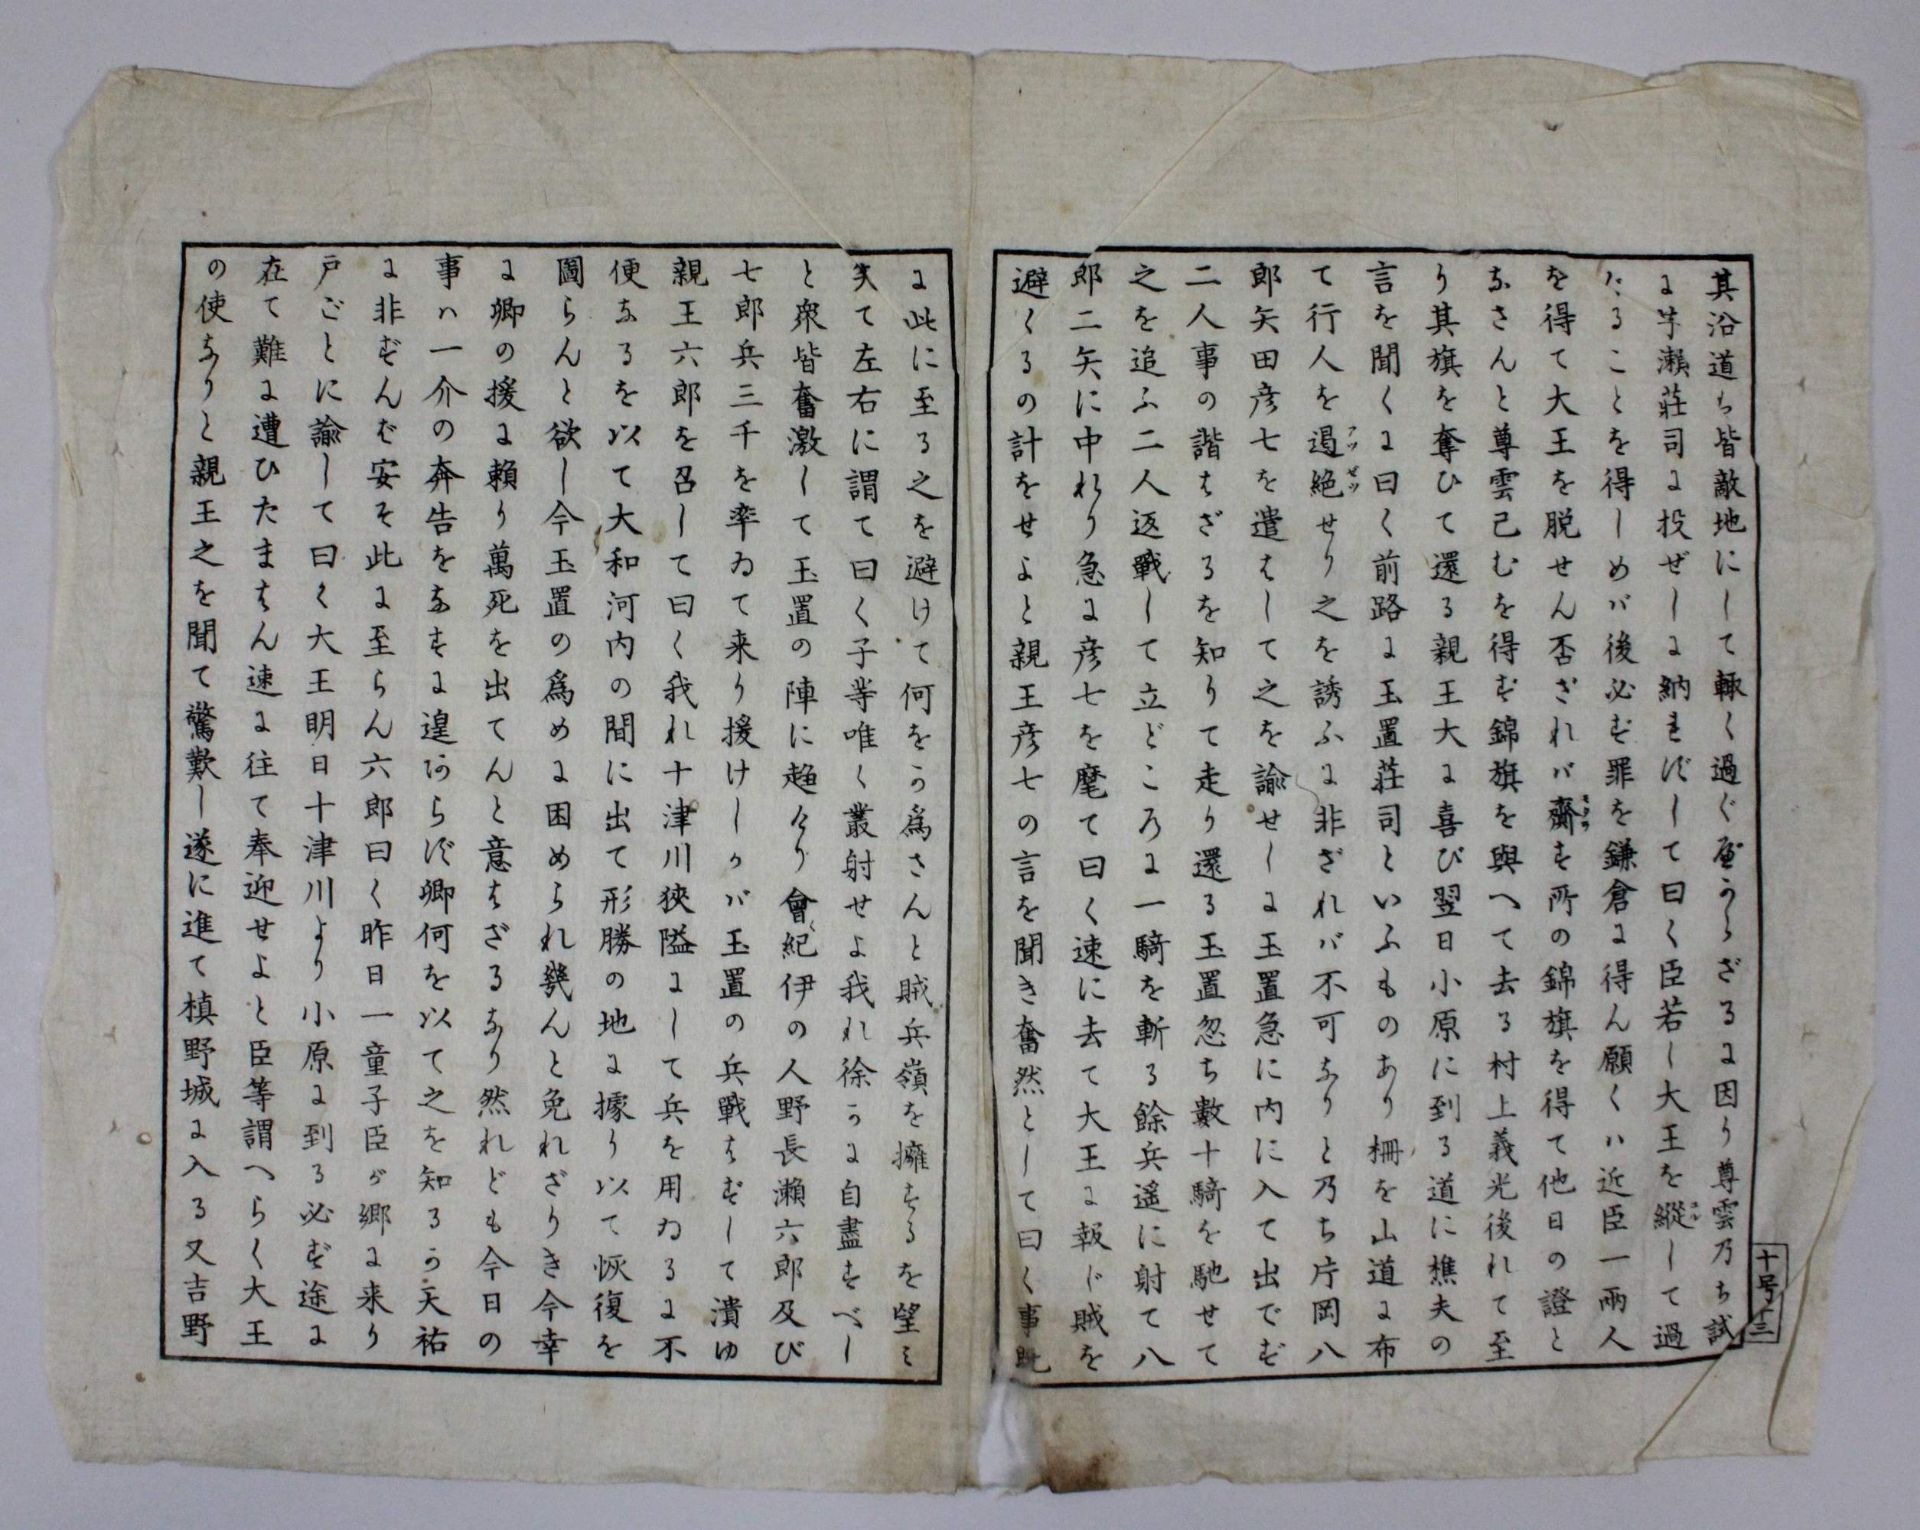 其沿道も皆敵地にして輙く過ぐ屋からざるに因り尊雲乃ち試
に芋瀬荘司に投ぜしに納れずして曰く臣若し大王を縦して過
たることを得しめバ後必ず罪を鎌倉に得ん願くハ近臣一両人
を得て大王を脱せん否ざれバ齎す所の錦旗を得て他日の證と
なさんと尊雲已むを得ず錦旗を與へて去る村上義光後れて至
り其旗を奪ひて還る親王大に喜び翌日小原に到る道に樵夫の
言を聞くに曰く前路に玉置荘司といふものあり柵を山道に布
て行人を遏絶せり之を誘ふに非ざれバ不可なりと乃ち片岡八
郎矢田彦七を遣はして之を諭せしに玉置急に内に入て出でず
二人事の諧はざるを知りて走り還る玉置忽ち數十騎を馳せて
之を追ふ二人返戰して立どころに一騎を斬る餘兵遥に射て八
郎二矢に中れり急に彦七を麾て曰く速に去て大王に報じ賊を
避くるの計をせよと親王彦七の言を聞き奮然として曰く事既
に此に至る之を避けて何をか為さんと賊兵嶺を擁するを望ミ
笑て左右に謂て曰く子等唯く叢射せよ我れ徐かに自盡すべし
と衆皆奮激して玉置の陣に趨けり會紀伊の人野長瀬六郎及び
七郎兵三千を率ゐて来り援けしかバ玉置の兵戰はずして潰ゆ
親王六郎を召して曰く我れ十津川狹隘にして兵を用ゐるに不
便なるを以て大和河内の間に出て形勝の地に據り以て恢復を
圖らんと欲し今玉置の爲めに困められ幾んと免れざりき今幸
に卿の援に頼り萬死を出てんと意はざるなり然れども今日の
事ハ一介の奔告をなすに遑あらず卿何を以て之を知るか天祐
に非ずんば安そ此に至らん六郎曰く昨日一童子臣が郷に来り
戸ごとに諭して曰く大王明日十津川より小原に到る必ず途に
在て難に遭ひたまはん速に往て奉迎せよと臣等謂へらく大王
の使なりと親王之を聞て驚歎し遂に進て槙野城に入る又吉野
十号ノ三